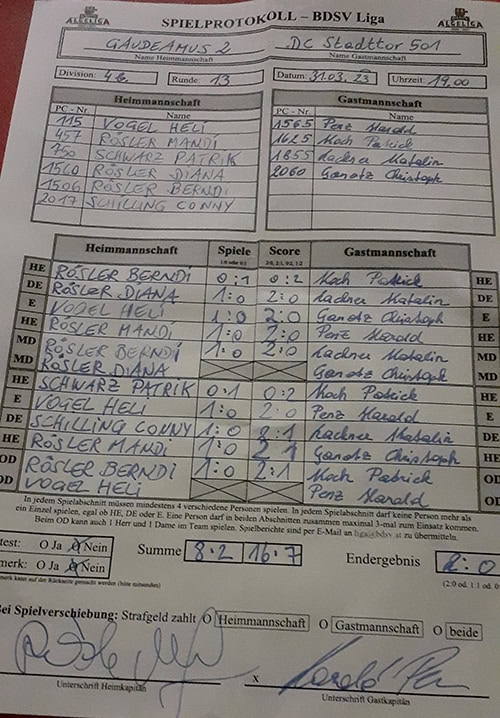 SPIELPROTOKOLL – BDSV Liga
GAUDEAMUS 2 DC Stadttor 501
Name Heimmannschaft Name Gastmannschaft
Division: 4b Runde: 13 Datum: 31.03.23 Uhrzeit: 19.00
Heimmannschaft Gastmannschaft
PC - Nr. Name PC - Nr. Name
115 VOGEL HELI 1565 Penz Harald
457 RÖSLER MANDI 1625 Koch Patrick
750 SCHWARZ PATRIK 1855 Lackner Natalin
1540 RÖSLER DIANA 2060 Ganotz Christoph
1506 RÖSLER BERNDI
2017 SCHILLING CONNY
Heimmannschaft Spiele Score Gastmannschaft
1:0 oder 0:1 2:0, 2:1, 0:2, 1:2
HE RÖSLER BERNDI 0:1 0:2 Koch Patrick HE
DE RÖSLER DIANA 1:0 2:0 Lackner Natalin DE
E VOGEL HELI 1:0 2:0 Ganotz Christoph E
HE RÖSLER MANDI 1:0 2:0 Penz Harald HE
MD RÖSLER BERNDI 1:0 2:0 Lackner Natalin MD
MD RÖSLER DIANA Ganotz Christoph MD
HE SCHWARZ PATRIK 0:1 0:2 Koch Patrick HE
E VOGEL HELI 1:0 2:0 Penz Harald E
DE SCHILLING CONNY 1:0 2:1 Lackner Natalin DE
HE RÖSLER MANDI 1:0 2:1 Ganotz Christoph HE
OD RÖSLER BERNDI 1:0 2:1 Koch Patrick OD
OD VOGEL HELI Penz Harald OD
In jedem Spielabschnitt müssen mindestens 4 verschiedene Personen spielen. In jedem Spielabschnitt darf keine Person mehr als
ein Einzel spielen, egal ob HE, DE oder E. Eine Person darf in beiden Abschnitten zusammen maximal 3-mal zum Einsatz kommen.
Beim OD kann auch 1 Herr und 1 Dame im Team spielen. Spielberichte sind per E-Mail an liga@bdsv.at zu übermitteln.
test: O Ja O Nein Summe 8:2 16:7 Endergebnis 2:0
merk: O Ja O Nein (2:0 od. 1:1 od. 0
merk kann auf der Rückseite gemacht werden (bitte
Bei Spielverschiebung: Strafgeld zahlt O Heimmannschaft O Gastmannschaft O beide
x
Unterschrift Heimkapitän Unterschrift Gastkapitän